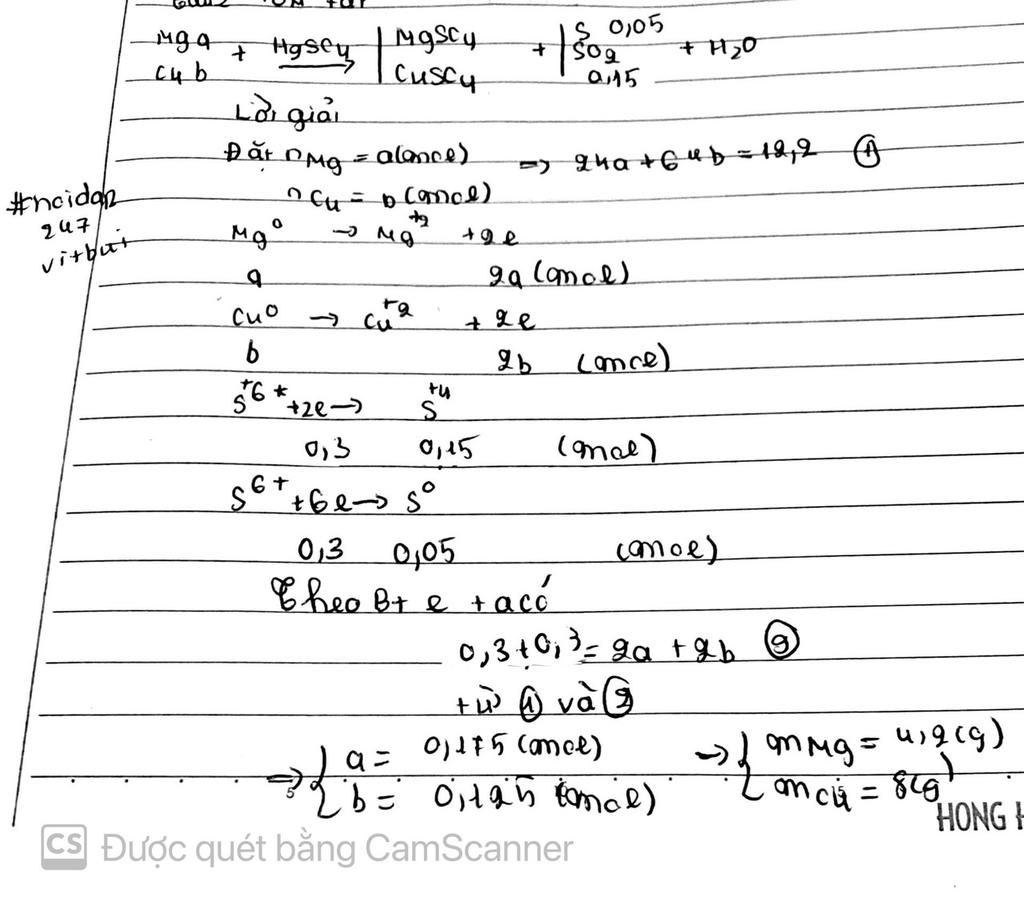 Mg a + H₂SO₄ → | MgSO₄ + | S 0,05 + H₂O
Cu b | CuSO₄ | SO₂
0,15
Lời giải
Đặt nMg = a(mol) => 24a + 64b = 12,2 ①
nCu = b (mol)
#noidan
247
vitbui
Mg⁰ → Mg⁺² + 2e
a 2a (mol)
Cu⁰ → Cu⁺² + 2e
b 2b (mol)
S⁺⁶ + 2e → S⁺⁴
0,3 0,15 (mol)
S⁶⁺ + 6e → S⁰
0,3 0,05 (mol)
Theo Bt e ta có
0,3 + 0,3 = 2a + 2b ②
từ ① và ②
=> { a = 0,175 (mol) → { mMg = 4,2 (g)
b = 0,125 (mol) mCu = 8(g)
HONG H
CS Được quét bằng CamScanner